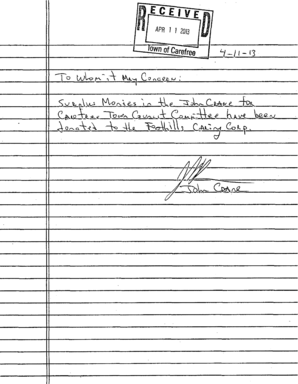 RECEIVED
APR 11 2013
Town of Carefree
4-11-13
To Whom it May Concern:
Surplus Monies in the John Crane for
Carefree Town Council Committee have been
donated to the Foothills Caring Corp.
John Crane